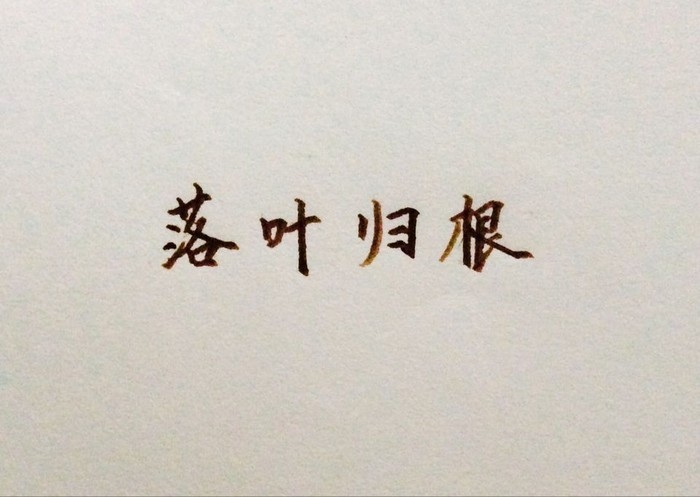 落叶归根